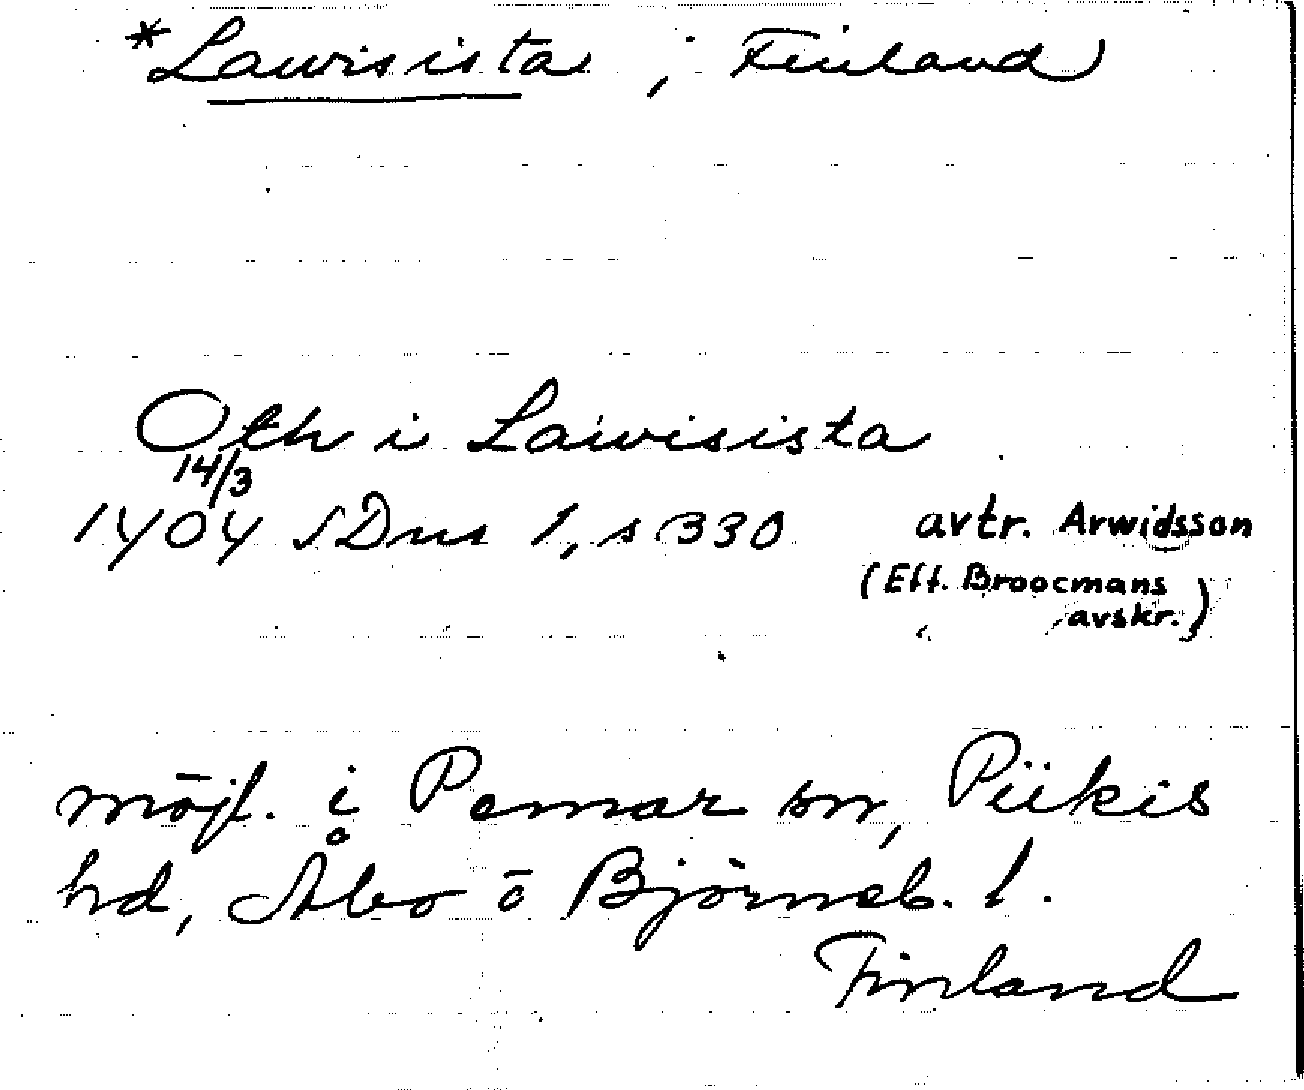 *Lawisista, Finland
Oth i Lawisista
14/3
1404 SDns 1, s 330 avtr. Arwidsson
(Eft. Broocmans
avskr.)
möjl. i Pemar sn, Piikis
hd, Åbo ō Björneb. l.
Finland